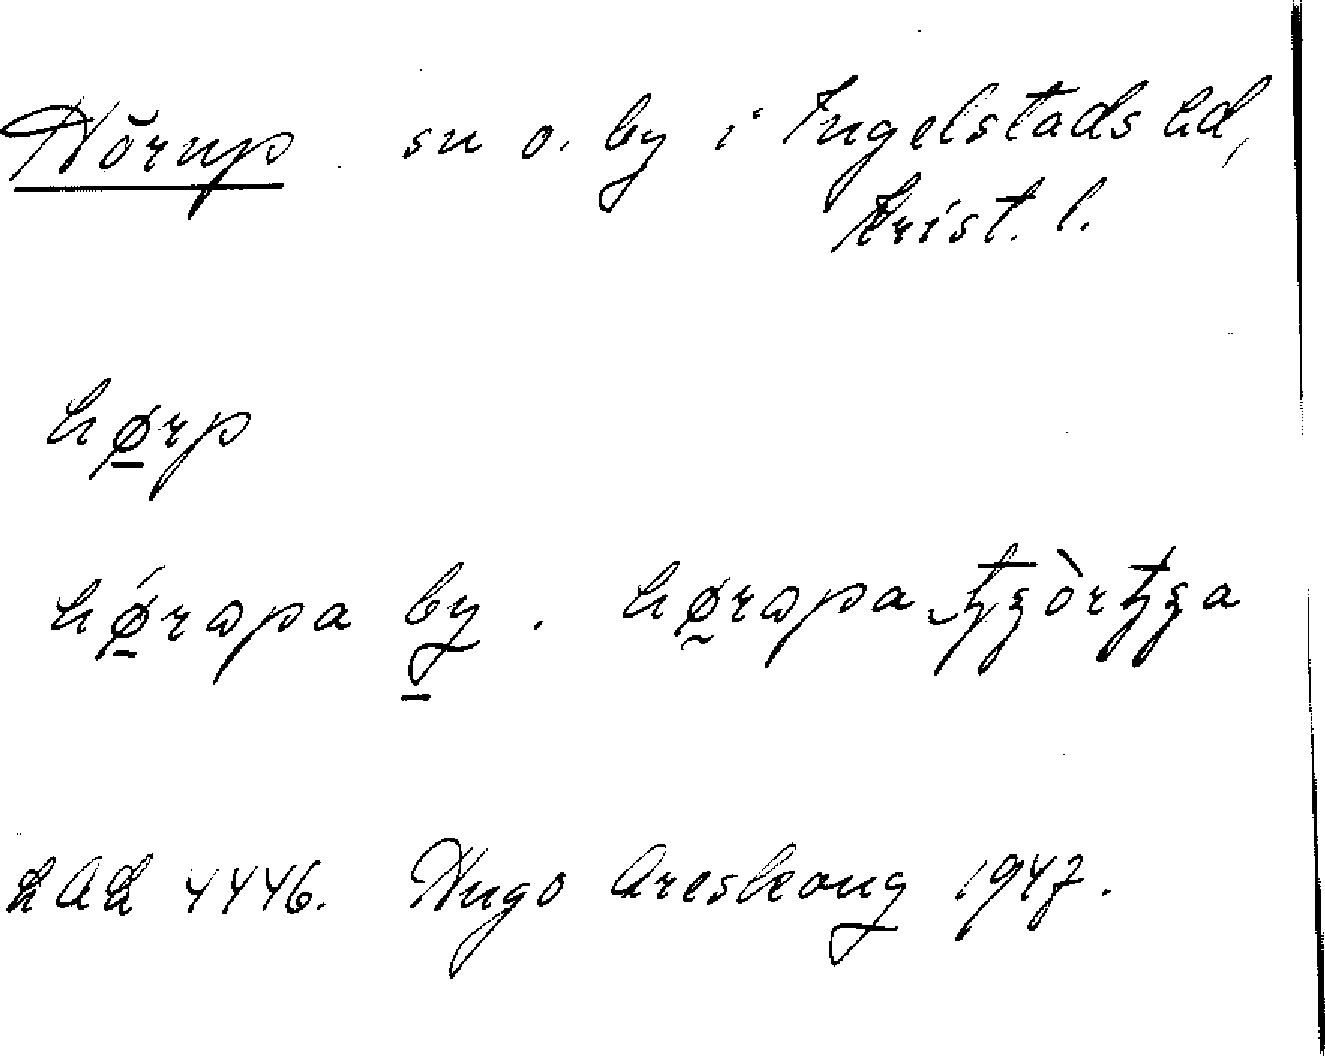 Hörup sn o. by i Ingelstads hd,
Krist. l.
hø̠rp
hǿ̠rapa by̠ . hø̰rapa
LAL 4446. Hugo Areskoug 1947.